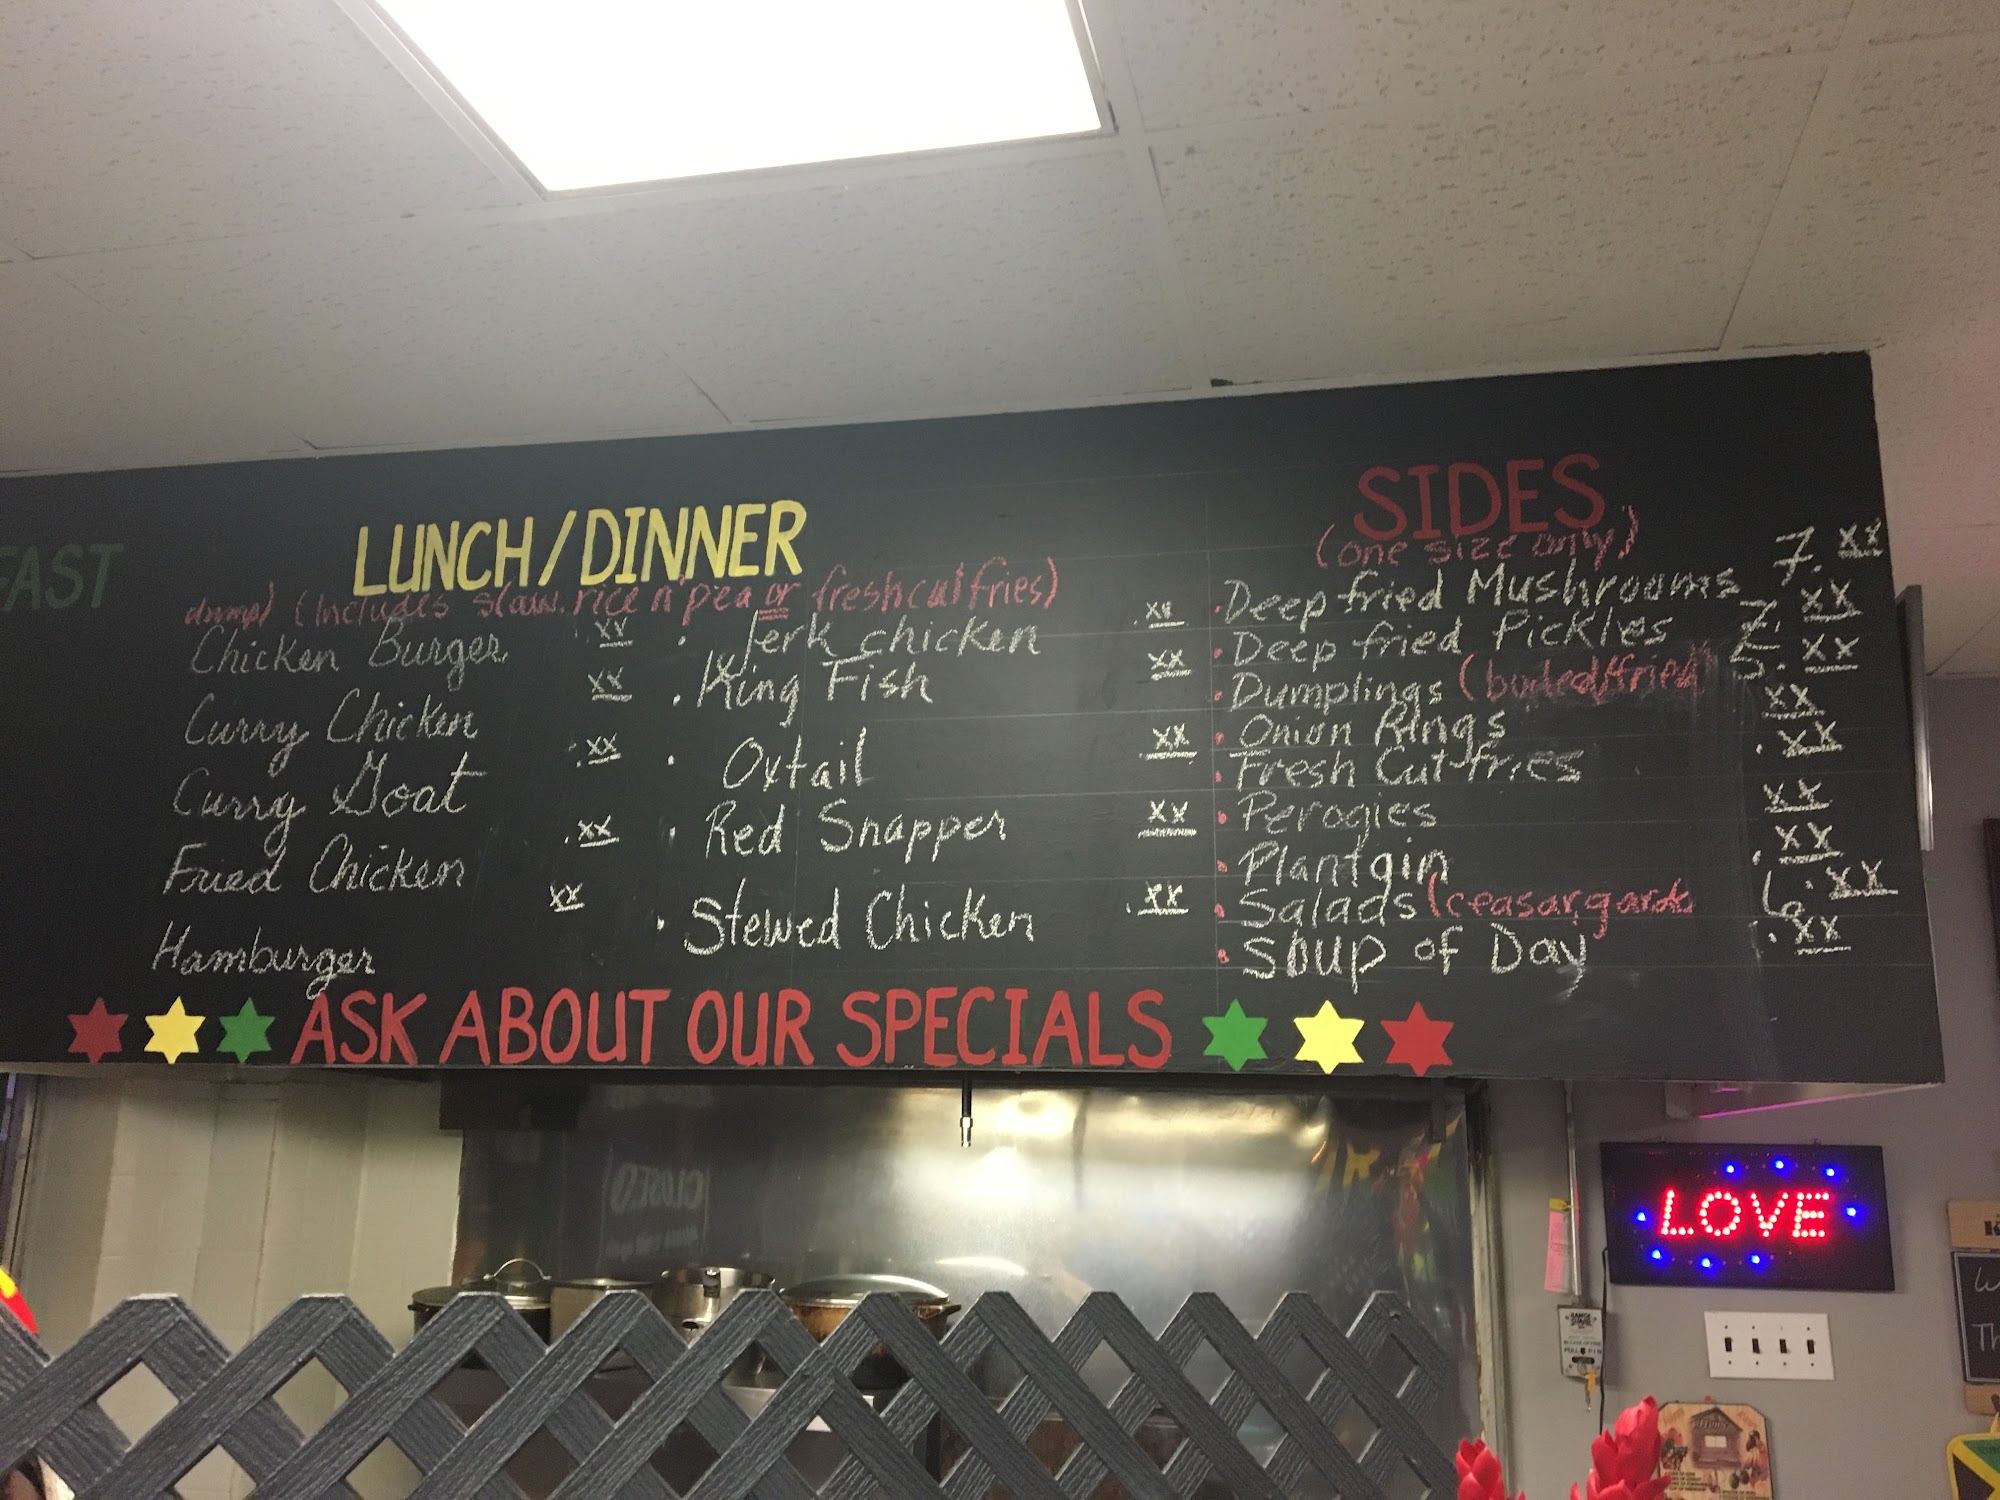 FAST
LUNCH/DINNER
(Includes slaw. rice n' pea or fresh cut fries)
Chicken Burger xx
Curry Chicken xx
Curry Goat .xx
Fried Chicken .xx
Hamburger xx
• Jerk chicken .xx
• King Fish xx
• Oxtail xx
• Red Snapper xx
• Stewed Chicken .xx
SIDES
(one size only)
• Deep fried Mushrooms 7.xx
• Deep fried Pickles 7.xx
• Dumplings (boiled/fried) 5.xx
• Onion Rings xx
• Fresh Cut fries .xx
• Perogies xx
• Plantain .xx
• Salads (ceasar, garden 6.xx
• Soup of Day .xx
ASK ABOUT OUR SPECIALS
CLOSED
LOVE
PULL PIN
Home